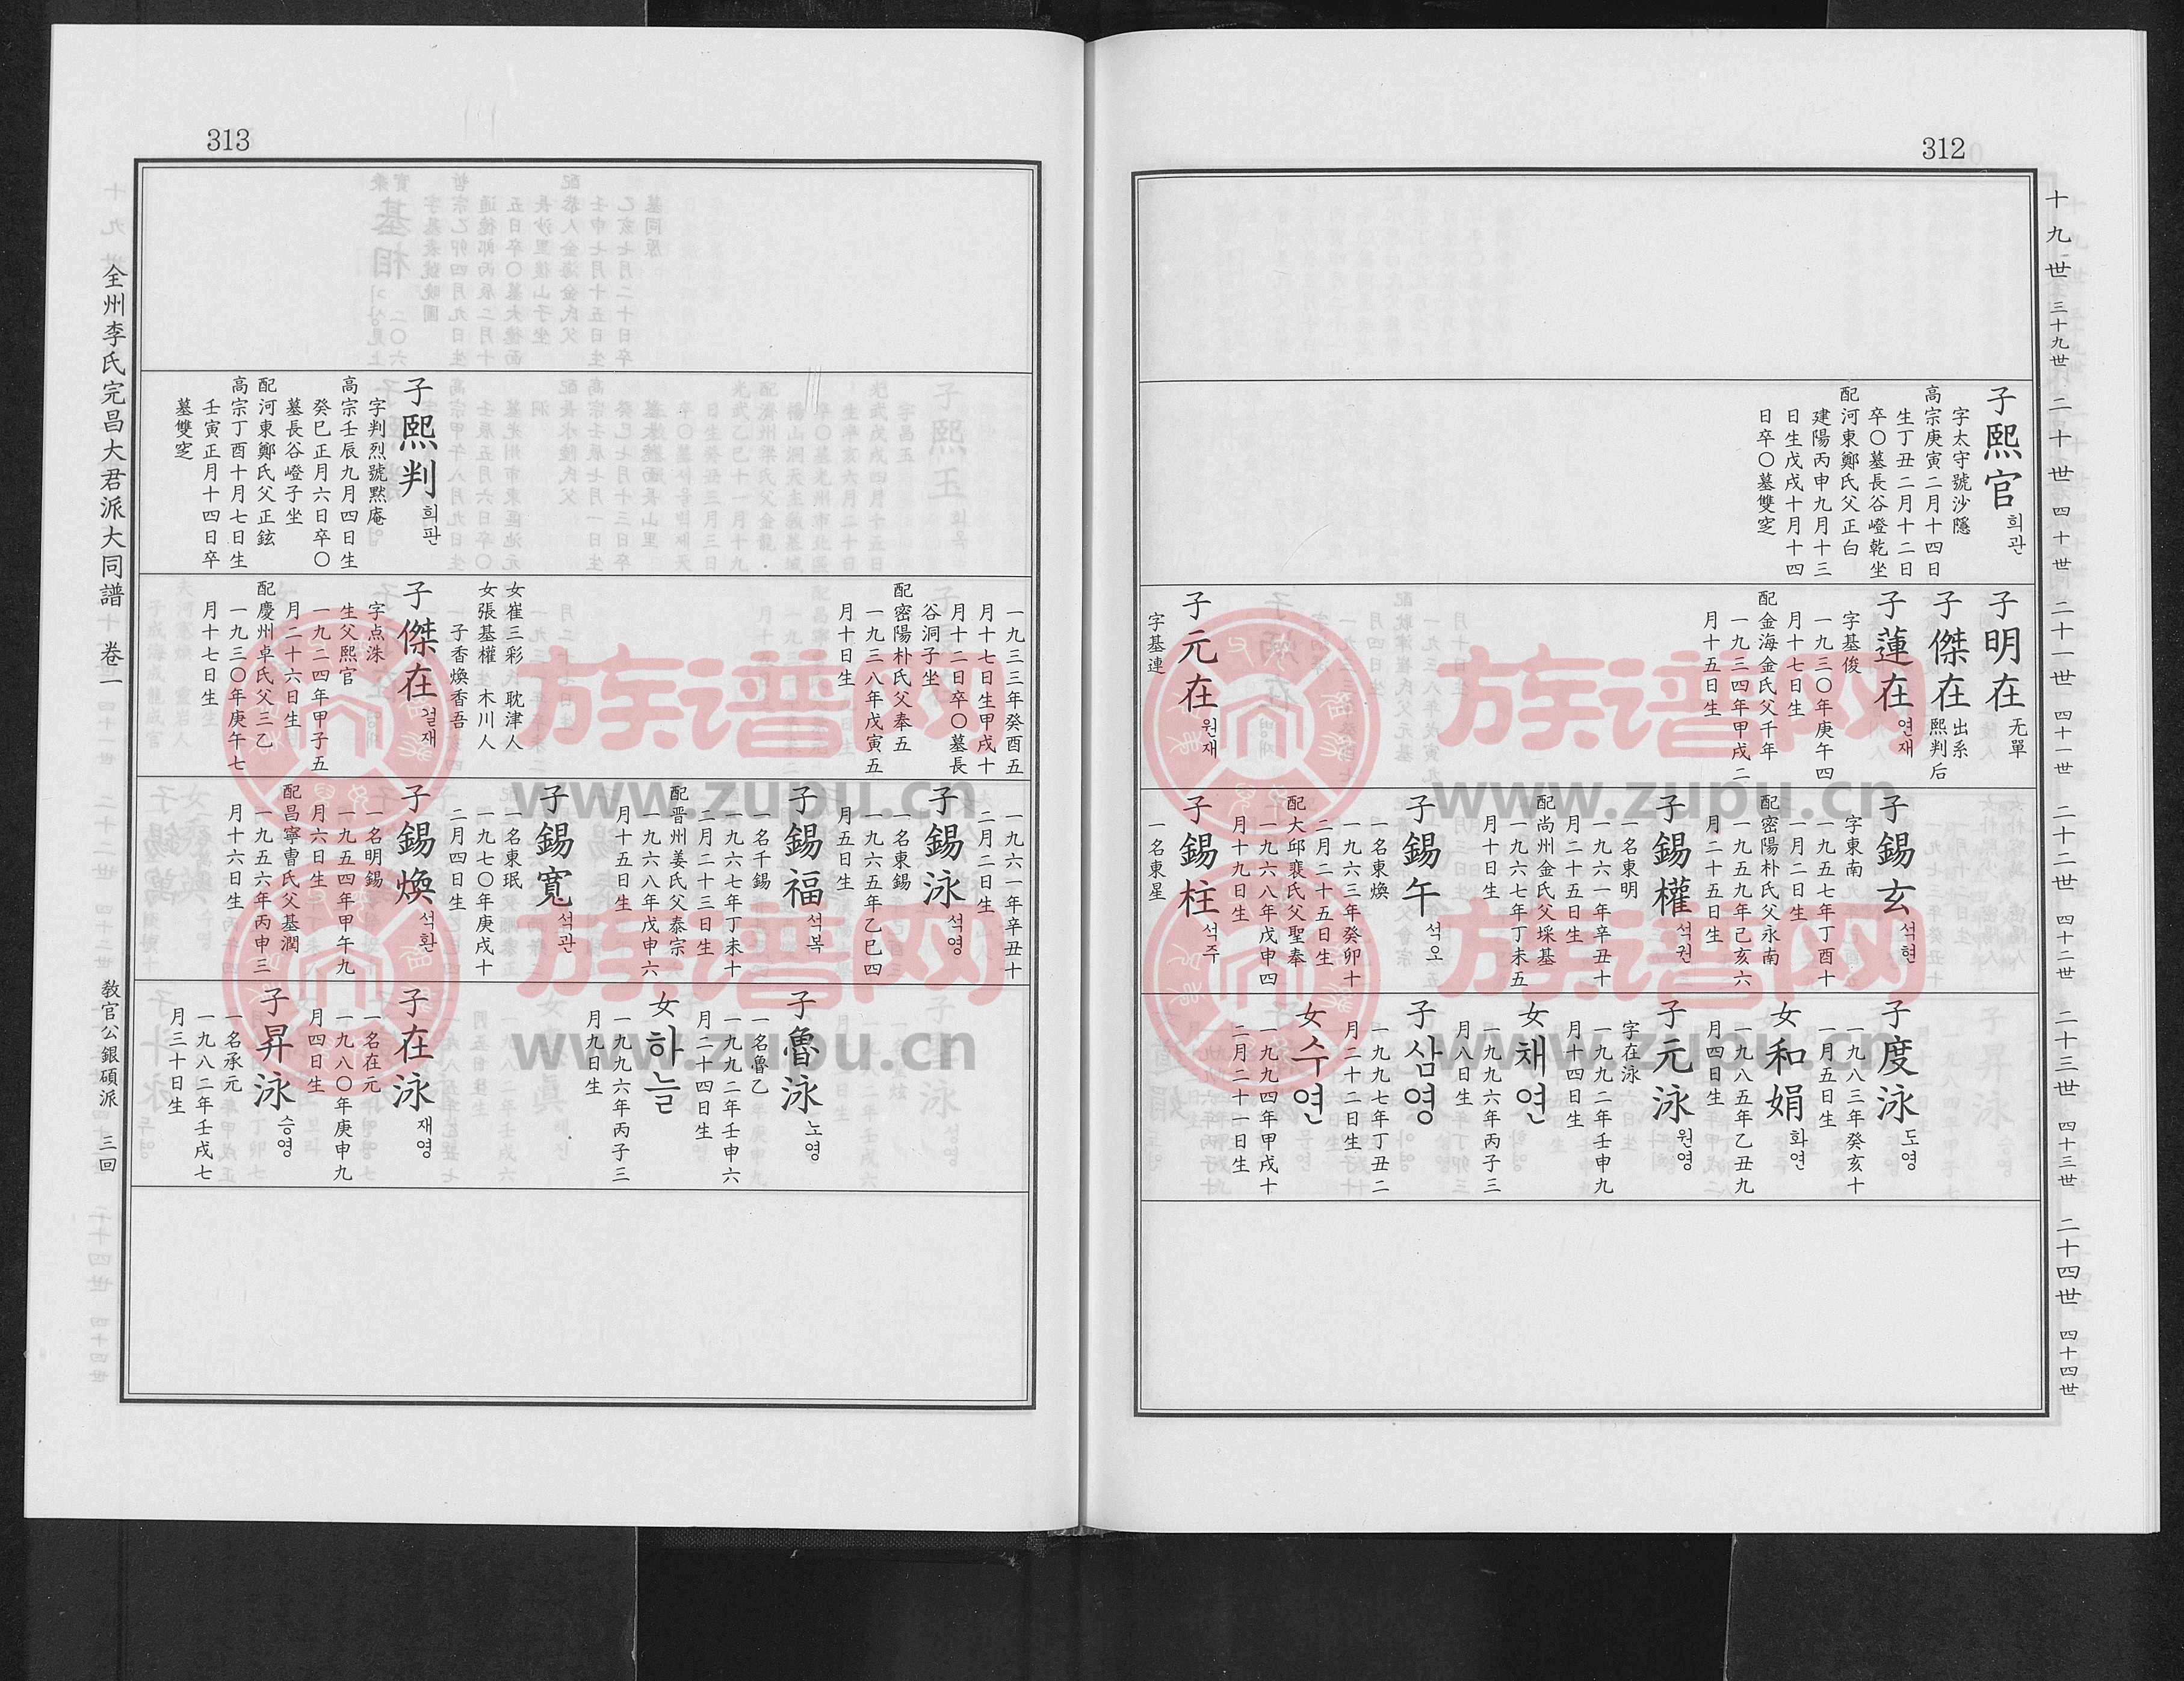 312
十九世 三十九世
二十世 四十世
二十一世 四十一世
二十二世 四十二世
二十三世 四十三世
二十四世 四十四世
子熙官 희관
字太守號沙隱
高宗庚寅二月十四日
生丁丑二月十二日
卒〇墓長谷嶝乾坐
配河東鄭氏父正白
建陽丙申九月十三
日生戊戌十月十四
日卒〇墓雙窆
子明在 无單
子傑在 出系熙判后
子蓮在 연재
字基俊
一九三〇年庚午四
月十七日生
配金海金氏父千年
一九三四年甲戌二
月十五日生
子元在 원재
字基連
子錫玄 석현
字東南
一九五七年丁酉十
一月二日生
配密陽朴氏父永南
一九五九年己亥六
月二十五日生
子錫權 석권
一名東明
一九六一年辛丑十
月二十五日生
配尚州金氏父埰基
一九六七年丁未五
月十日生
子錫午 석오
一名東煥
一九六三年癸卯十
二月二十五日生
配大邱裵氏父聖奉
一九六八年戊申四
月十九日生
子錫柱 석주
一名東星
子度泳 도영
一九八三年癸亥十
一月五日生
女和娟 화연
一九八五年乙丑九
月四日生
子元泳 원영
字在泳
一九九二年壬申九
月十四日生
女채연
一九九六年丙子三
月八日生
子삼영
一九九七年丁丑二
月二十二日生
女수연
一九九四年甲戌十
二月二十一日生
313
子熙判 희판
字判烈號黙庵
高宗壬辰九月四日生
癸巳正月六日卒〇
墓長谷嶝子坐
配河東鄭氏父正鉉
高宗丁酉十月七日生
壬寅正月十四日卒
墓雙窆
一九三三年癸酉五
月十七日生甲戌十
月十二日卒〇墓長
谷洞子坐
配密陽朴氏父奉五
一九三八年戊寅五
月十日生
女崔三彩 耽津人
女張基權 木川人
子香煥香吾
子傑在 걸재
字点洙
生父熙官
一九二四年甲子五
月二十六日生
配慶州卓氏父三乙
一九三〇年庚午七
月十七日生
一九六一年辛丑十
二月二日生
子錫泳 석영
一名東錫
一九六五年乙巳四
月五日生
子錫福 석복
一名千錫
一九六七年丁未十
二月二十三日生
配晋州姜氏父泰宗
一九六八年戊申六
月十五日生
子錫寬 석관
一名東珉
一九七〇年庚戌十
二月四日生
子錫煥 석환
一名明錫
一九五四年甲午九
月六日生
配昌寧曺氏父基潤
一九五六年丙申三
月十六日生
子魯泳 노영
一名魯乙
一九九二年壬申六
月二十四日生
女하늘
一九九六年丙子三
月九日生
子在泳 재영
一名在元
一九八〇年庚申九
月四日生
子昇泳 승영
一名承元
一九八二年壬戌七
月三十日生
全州李氏完昌大君派大同譜 卷二 敎官公銀碩派 三回
族谱网
www.zupu.cn
族谱网
www.zupu.cn
族谱网
www.zupu.cn
族谱网
www.zupu.cn